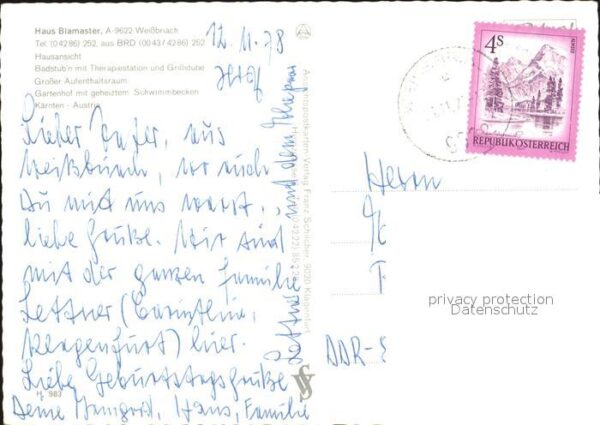 Haus Blamaster, A-9622 Weißbriach
Tel. (0 42 86) 252, aus BRD (00 43 / 42 86) 252
Hausansicht
Badstub'n mit Therapiestation und Grillstube
Großer Aufenthaltsraum
Gartenhof mit geheiztem Schwimmbecken
Kärnten - Austria
12. 11. 78
Lieber aus
Weißbriach, wo auch
Du mit uns warst,
liebe Grüße. Wir sind
mit der ganzen Familie
Lettner (Carinthia,
Klagenfurt) hier.
Liebe Geburtstagsgrüße
Deine Irmgard, Hans, Familie
Lettner und dem Ehepaar
H 983
Verlag Franz Schilcher, 9020 Klagenfurt
4S
REPUBLIK ÖSTERREICH
Herrn
DDR-
privacy protection
Datenschutz